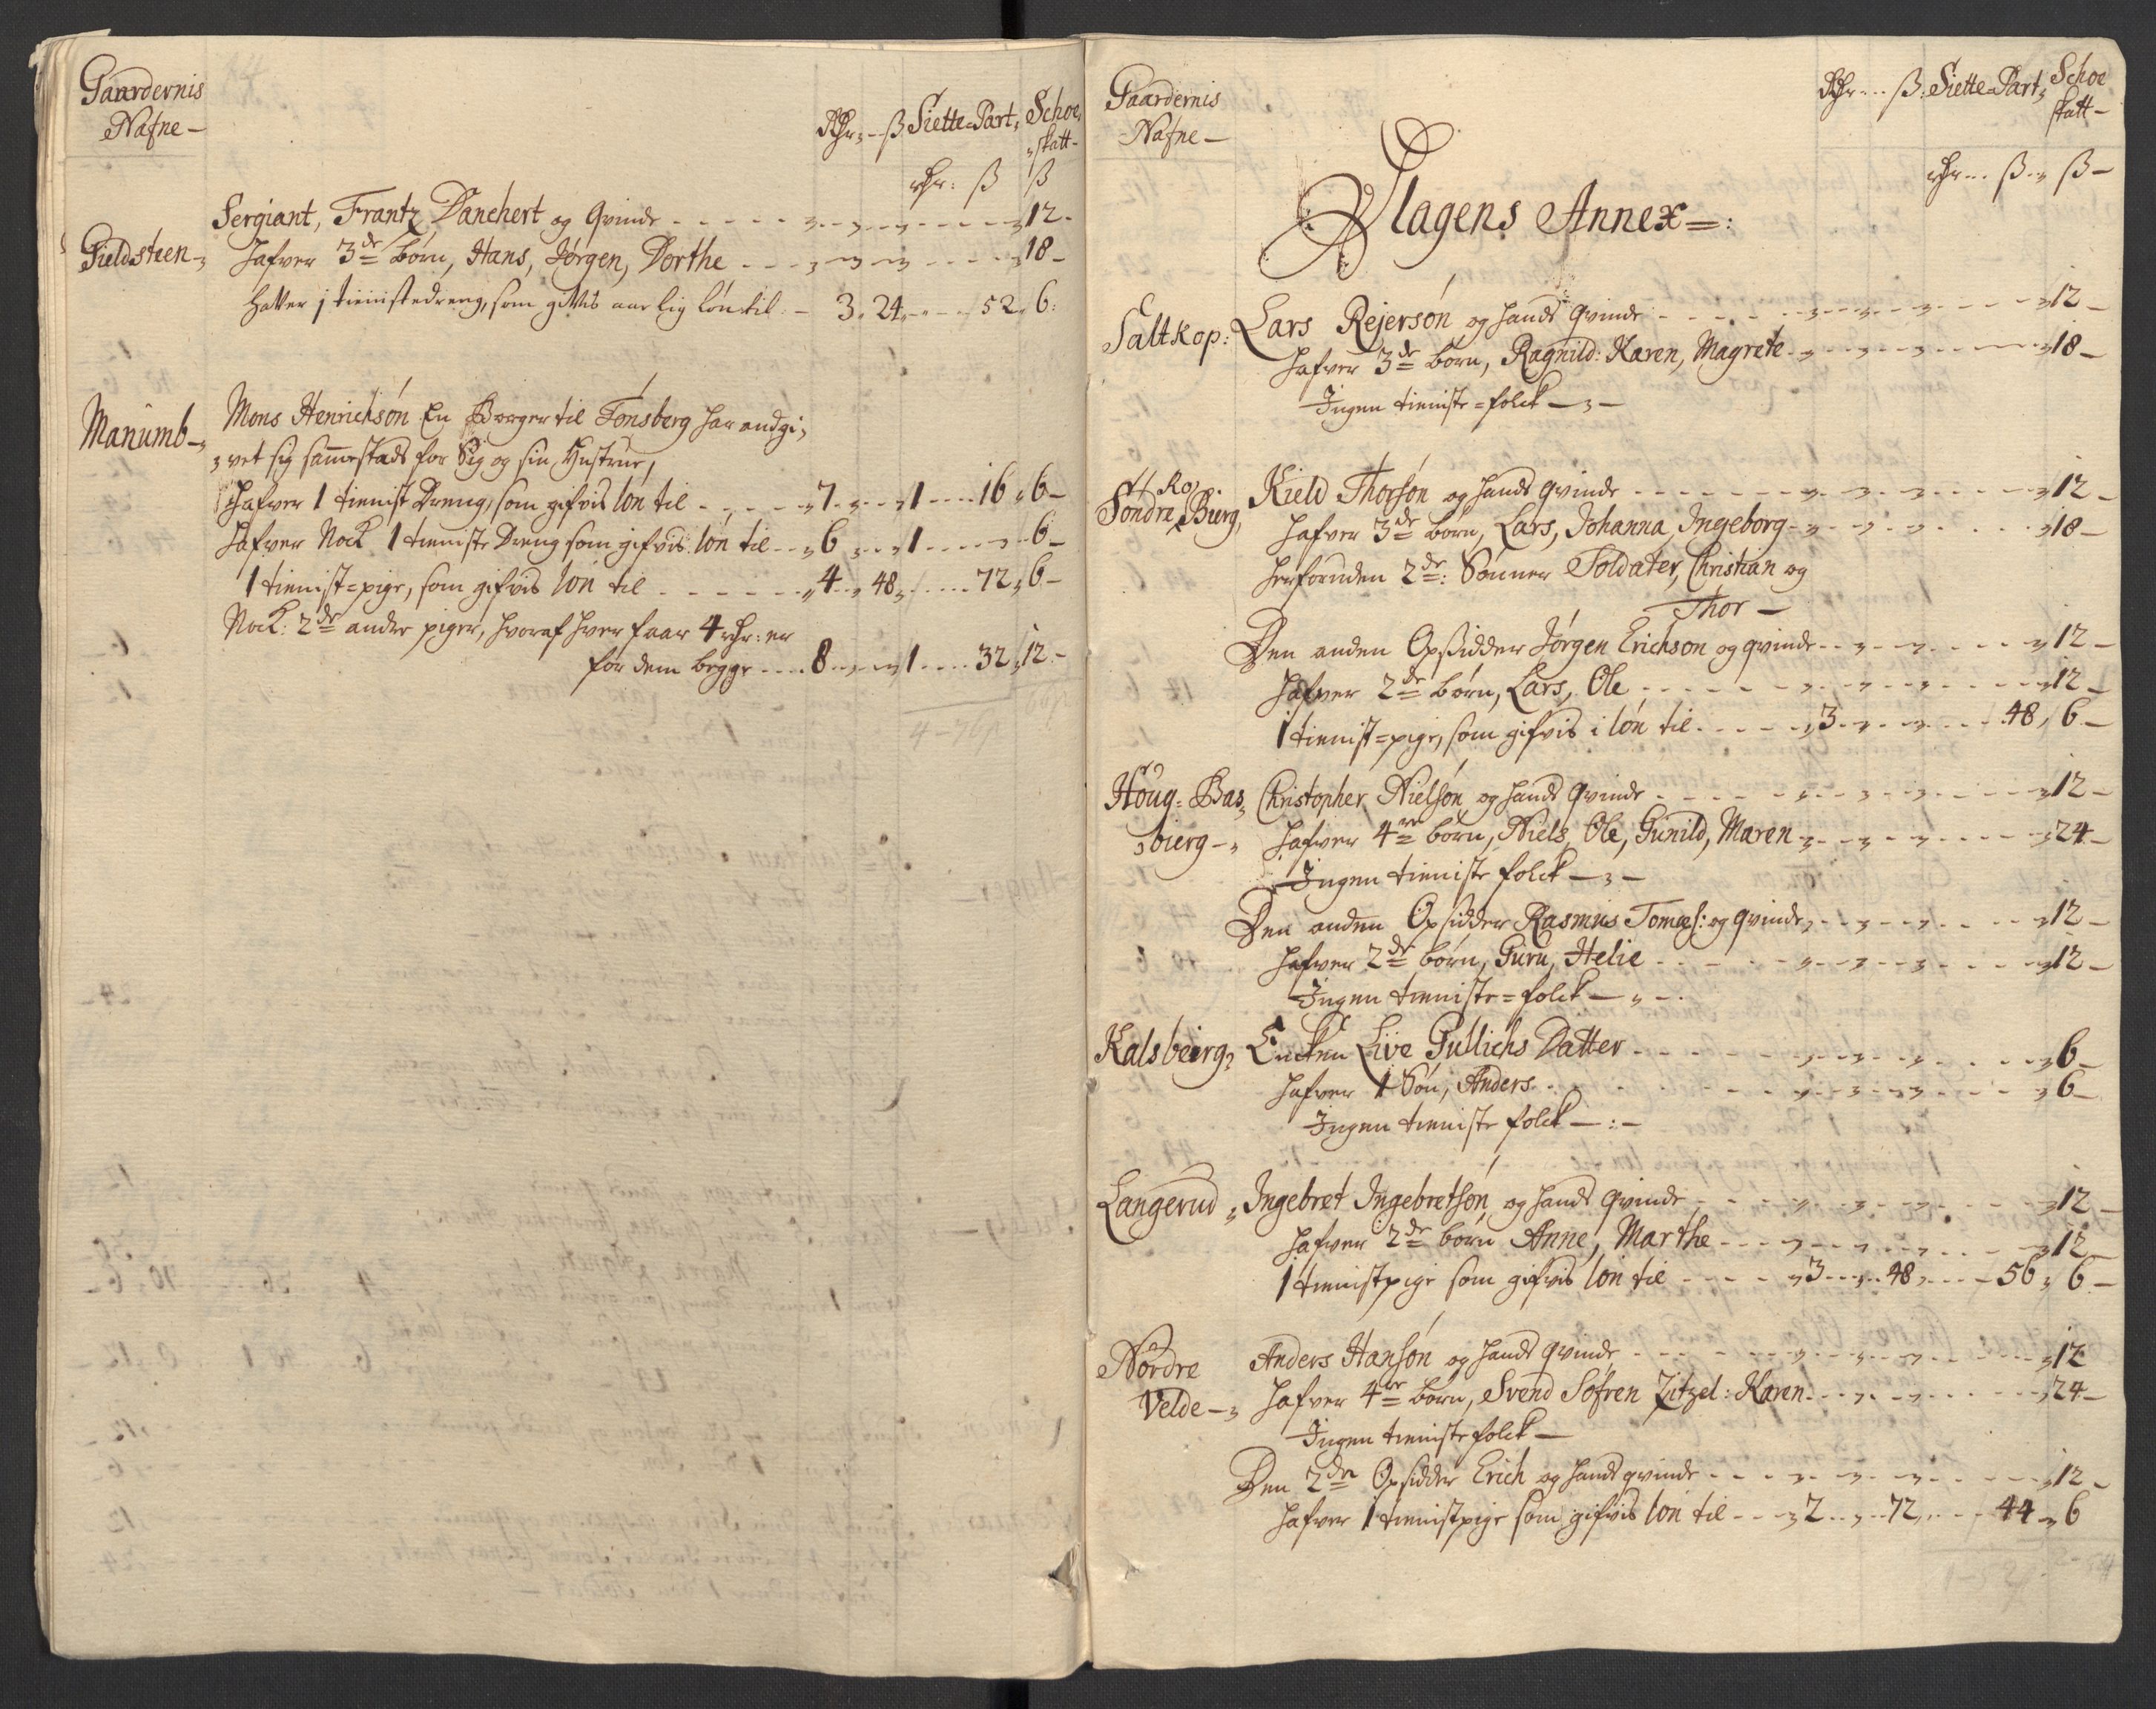 Gaardernis
Nafne
Rdr ß Siette-Part, Schoe
skatt
rdr: ß ß
Sergiant, Frantz Danehert og Qvinde 12
Gieldsteen Hafver 3de børn, Hans, Jørgen, Dorthe 18
Hafver 1 tienistedreng, som gifvis aarlig løn til 3. 24 52. 6
Manumb Mons Henrichsøn En Borger til Tønsberg har andgi
vet sig sammestads for Sig og sin Hustrue,
Hafver 1 tienist Dreng, som gifvis løn til 7 1 16 6
Hafver Nock 1 tieniste Dreng som gifvis løn til 6 1 6
1 tienist=pige, som gifvis løn til 4 48 72 6
Nock: 2de andre piger, hvoraf hver faar 4 rdr: er
for dem begge 8 1 32 12
4-76ß
Gaardernis
Nafne
Rdr ß: Siette-Part, Schoe
skatt
rdr ß ß
Slagens Annex
Saltkop: Lars Rejersøn og hands Qvinde 12
Hafver 3de børn, Ragnild: Karen, Magrete 18
Ingen tieniste=folck
Søndre Ro
Bierg, Kield Thorsøn og hands Qvinde 12
Hafver 3de børn, Lars, Johanna, Ingeborg 18
herforuden 2de: Sønner Soldater, Christian og
Thor
Den anden Opsidder Jørgen Erichson og qvinde 12
Hafver 2de børn, Lars, Ole 12
1 tienist=pige, som gifvis i løn til 3 48 6
Høug=Bas
bierg Christopher Nielsøn og hands Qvinde 12
Hafver 4re børn, Niels, Ole, Gunild, Maren 24
Ingen tieniste folck
Den anden Opsidder Rasmus Tomæs: og qvinde 12
Hafver 2de børn, Guru, Helie 12
Ingen tieniste=folck
Kalsbeirg Encken Live Gullichs Datter 6
Hafver 1 Søn, Anders 6
Ingen tieniste folck
Langerud Ingebret Ingebretsøn og hands Qvinde 12
Hafver 2de børn Anne, Marthe 12
1 tienistpige som gifvis løn til 3 48 56 6
Nordre
Velde Anders Hansøn og hands qvinde 12
Hafver 4re børn, Svend Søfren Zitzel: Karen 24
Ingen tieniste folck
Den 2den Opsidder Erich og hands qvinde 12
Hafver 1 tienistpige som gifvis løn til 2 72 44 6